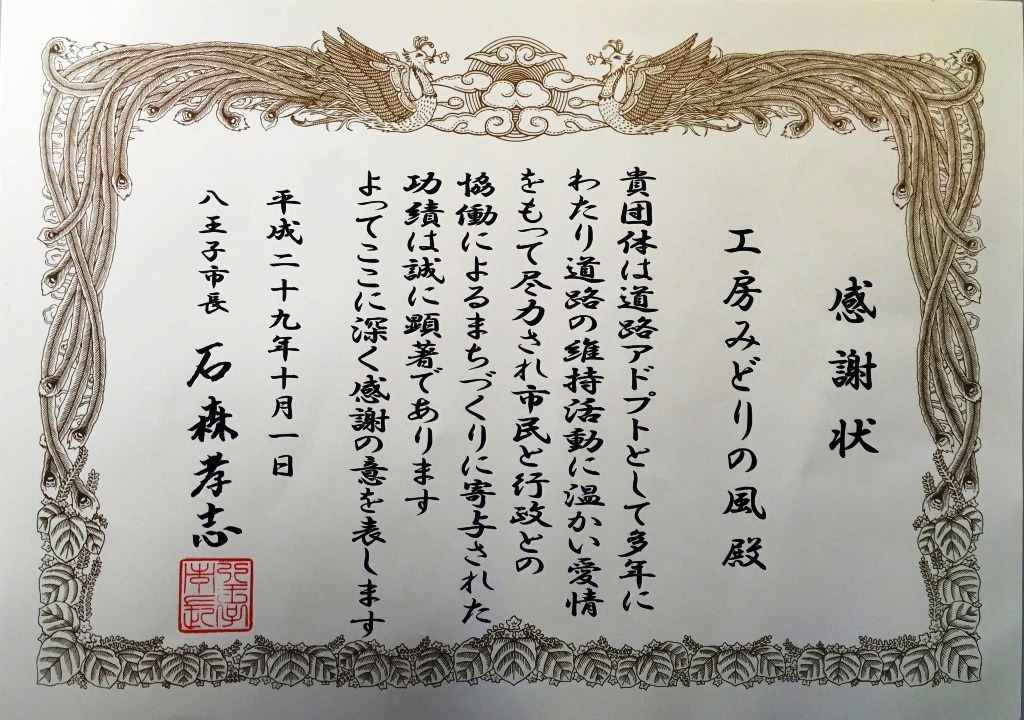 感謝状
工房みどりの風殿
貴団体は道路アドプトとして多年に
わたり道路の維持活動に温かい愛情
をもって尽力され市民と行政との
協働によるまちづくりに寄与された
功績は誠に顕著であります
よってここに深く感謝の意を表します
平成二十九年十月一日
八王子市長 石森孝志
八王子
市長